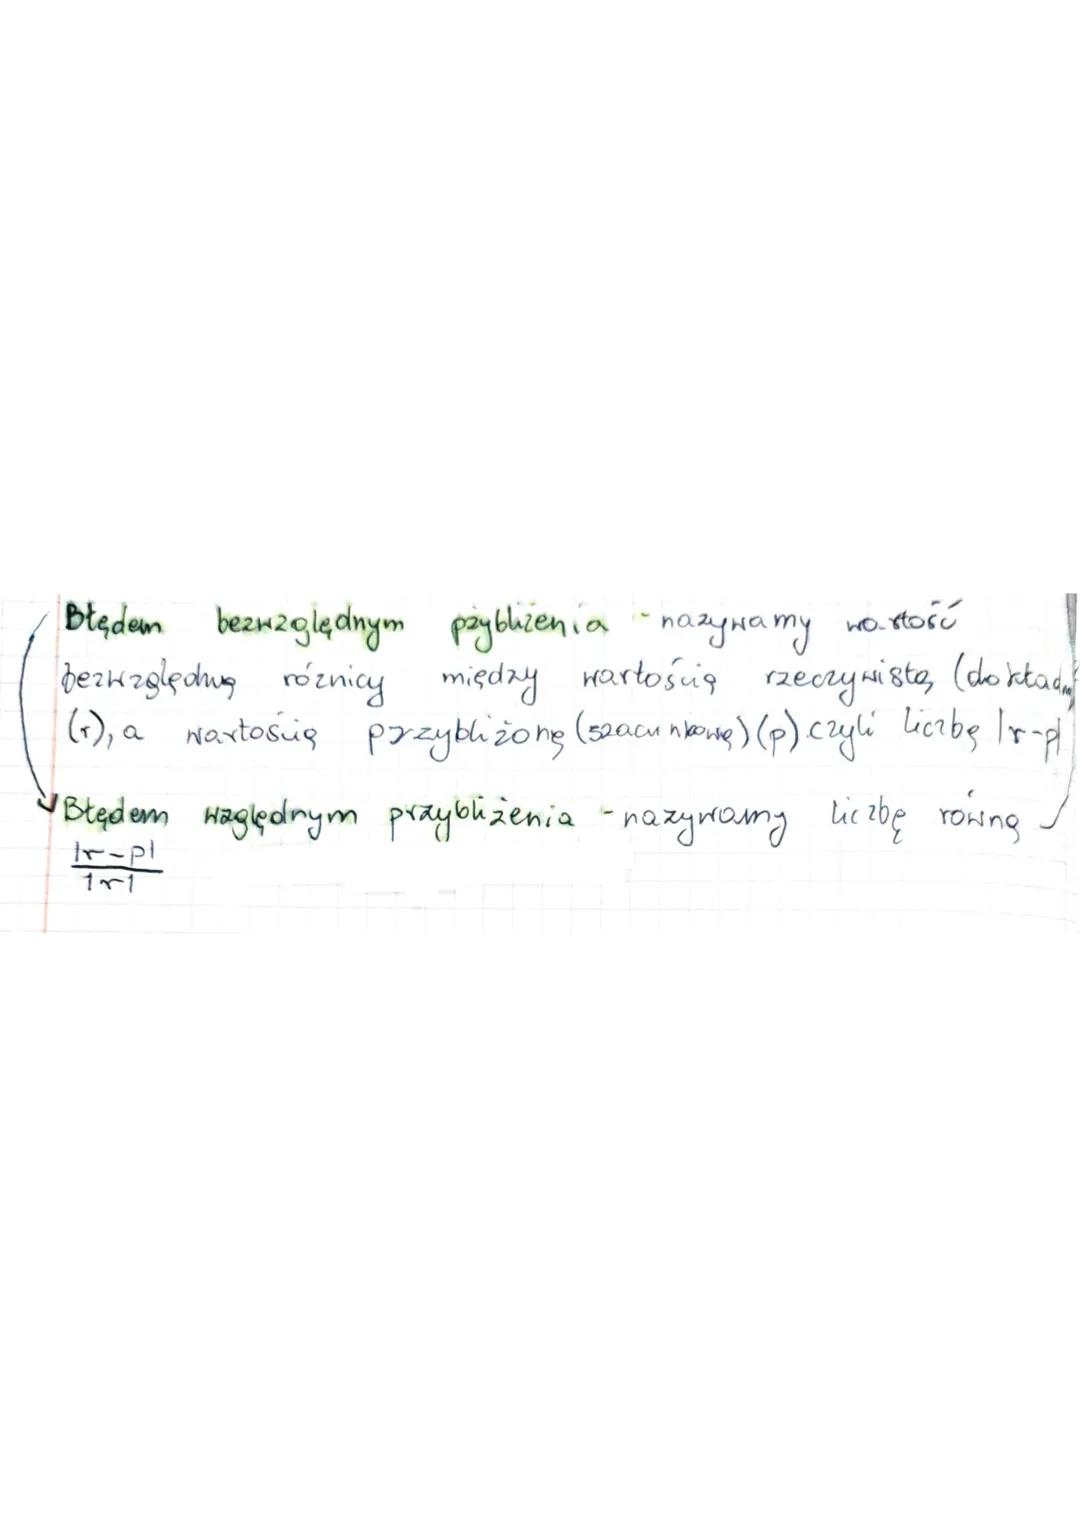 Błędem bezwzględnym pżybliżenia - nazywamy wartość
bezwzględną różnicy między wartością rzeczywistą (dokładną)
(r), a wartością przybliżoną (szacunkową) (p) czyli liczbę |r-p|
Błędem względnym przybliżenia - nazywamy liczbę równą
|r-p|
|r|